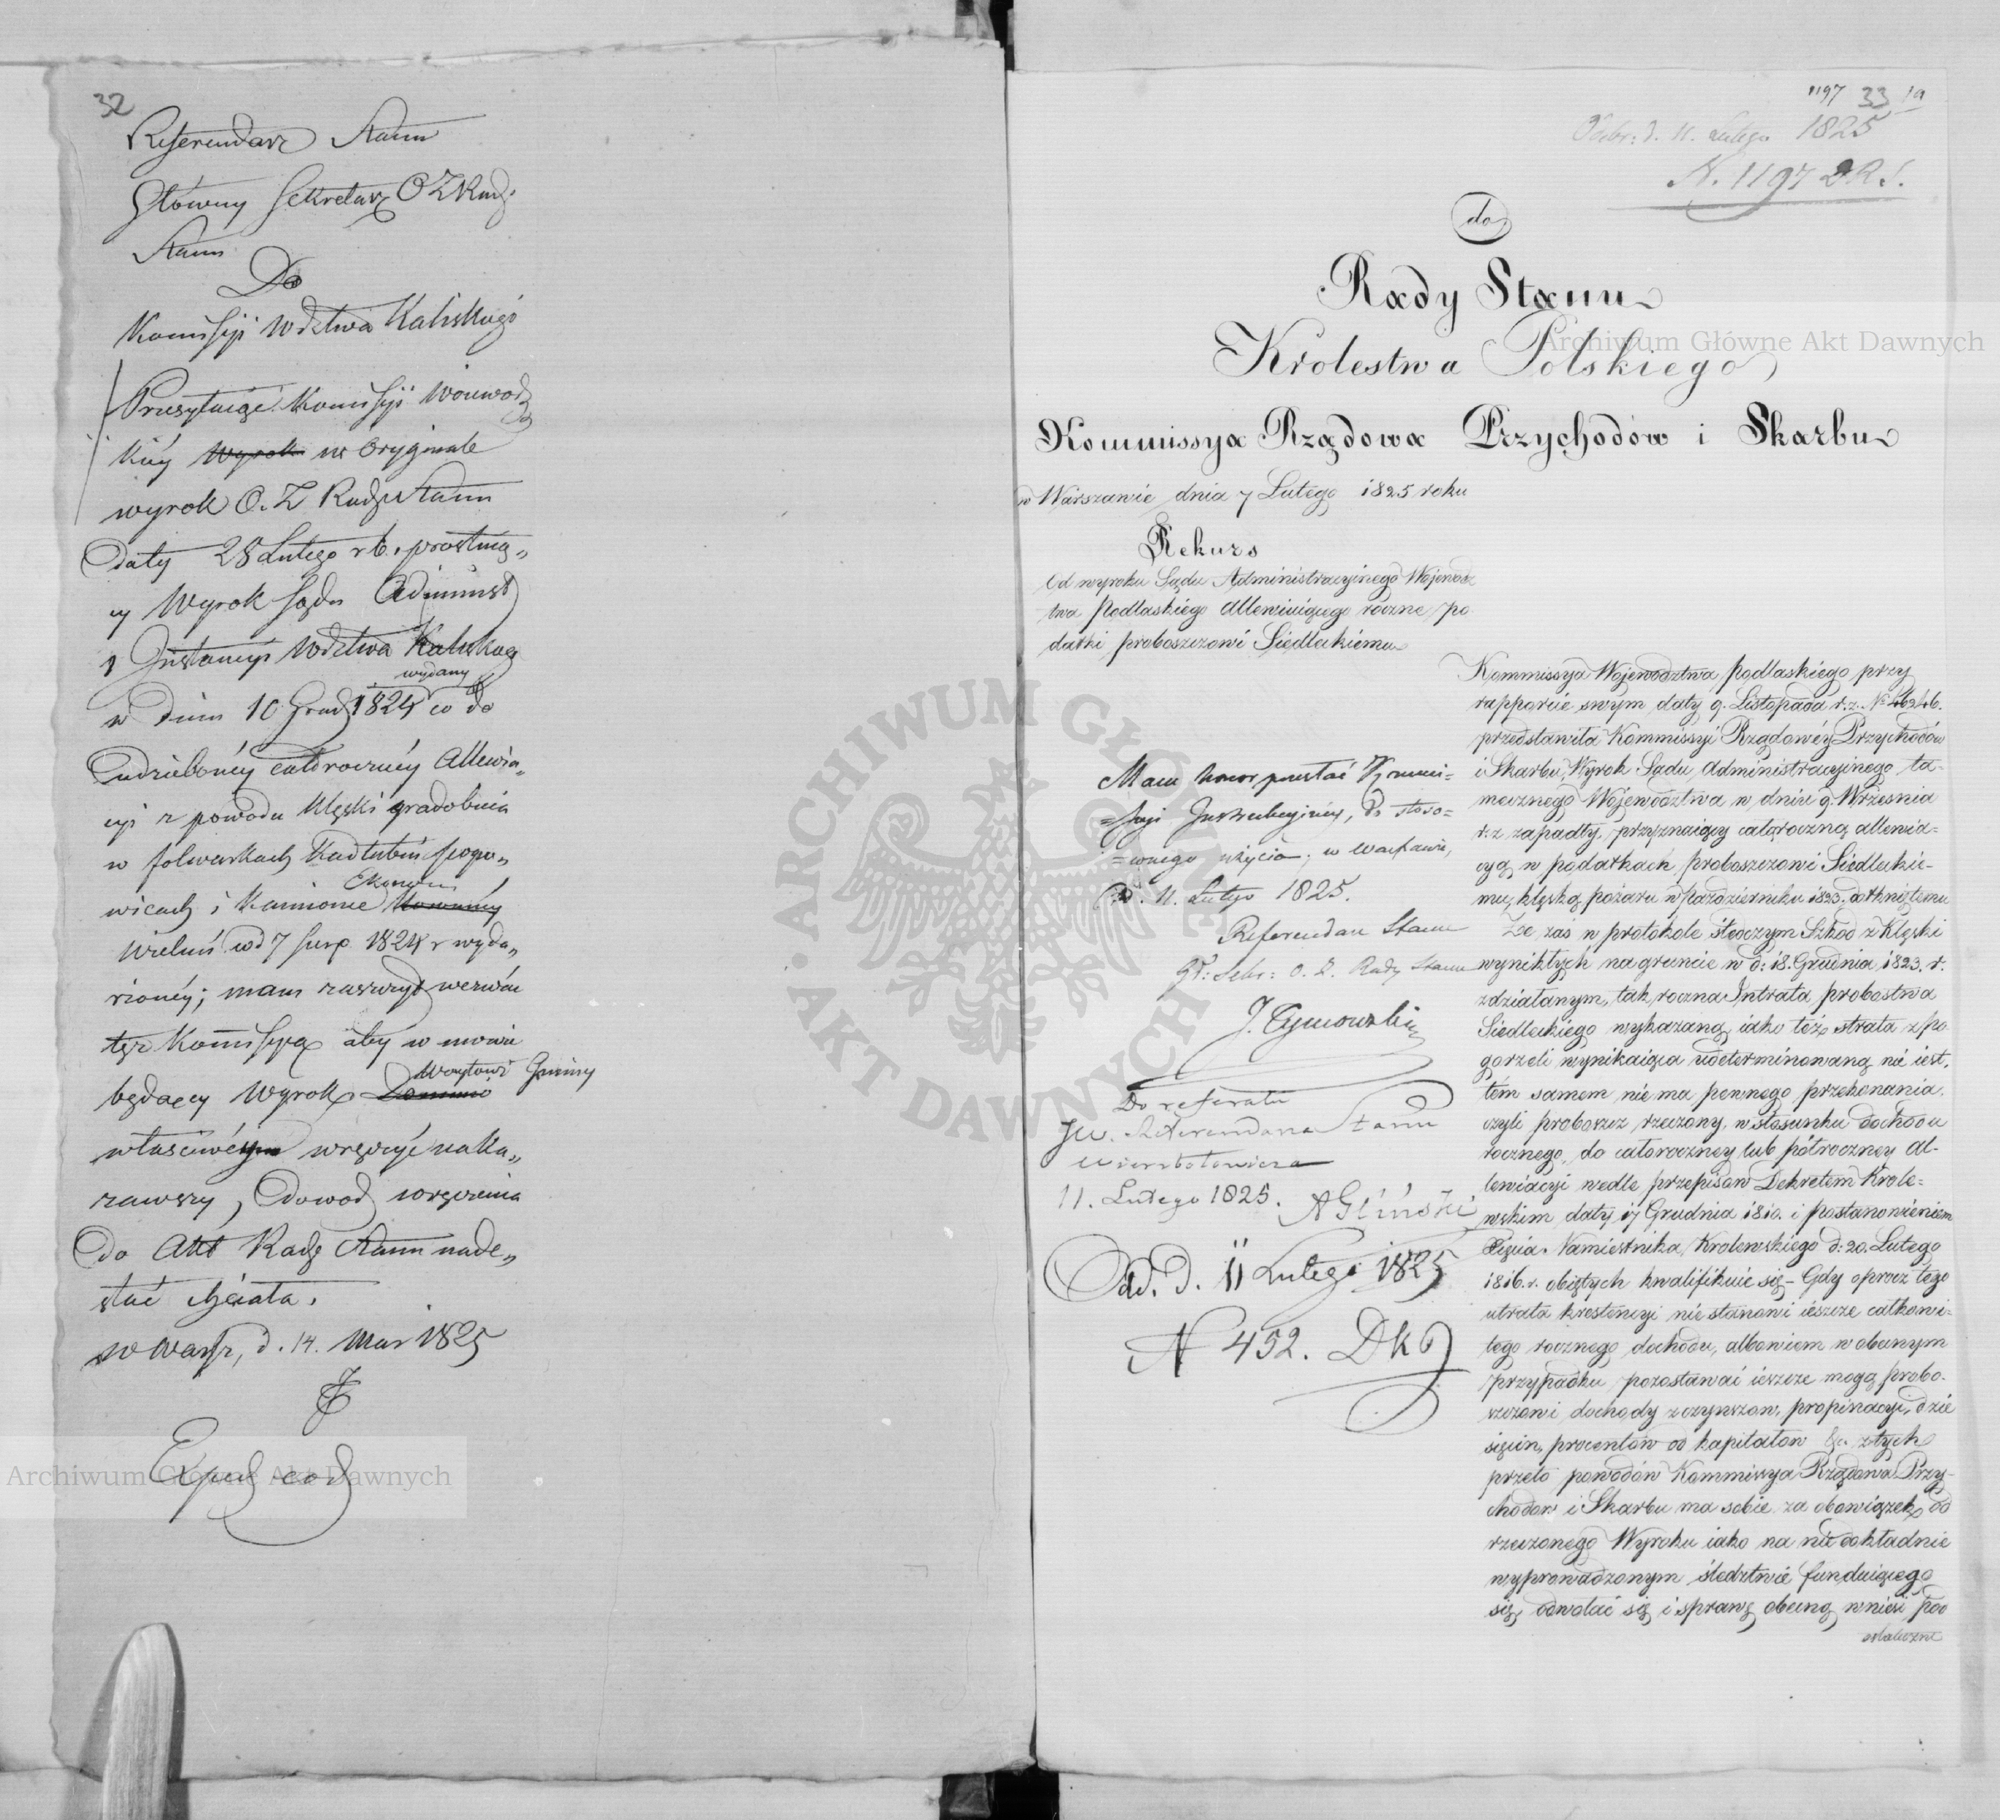 32
Referendarz Stanu
Główny Sekretarz O Z Rady
Stanu
Do
Kommissyi Wdztwa Kaliskiego
Przesyłaiąc Kommissyi Woiewodz
kiey wyrok w Oryginale
wyrok O. Z Rady Stanu
Daty 28 Lutego r b. prostuią„
cy Wyrok Sądu Administ
1 Instancyi Wdztwa Kaliskieg
wydany
w dniu 10 Grud 1824 co do
udzieloney całoroczney Allewia„
cyi z powodu klęski gradobicia
w folwarkach Kadłubiu
wicach i Kamionie
Ekonom
Wieluń od 7 Sierp 1824 r wyda„
rzoney; mam zaszczyt wezwać
też Kommissyą aby w mowie
Woytowi Gminy
będący Wyrok
właściwemu wręczyć naka„
zawszy, Dowod wręczenia
do Akt Rady Stanu nade„
słać chciała.
w Warsz, d. 14. Mar 1825
Exped eod
1197 33 19
Odebr: d. 11. Lutego 1825
N. 1197 D.R.S.
do
Rady Stanu
Krolestwa Polskiego
Kommissya Rządowa Przychodów i Skarbu
w Warszawie dnia 7 Lutego 1825 roku
Rekurs
Od wyroku Sądu Administracyinego Wojewodz
twa Podlaskiego allewiuiącego roczne po
datki proboszczowi Siedleckiemu
Mam honor przesłać Kommi=
=ssyi Instrukcyiney, do stoso=
=wnego użycia; w Warszawie,
d. 11. Lutego 1825.
Referendarz Stanu
Gł: Sekr: O. Z. Rady Stanu
J. Tymowski
Do referatu
JW. Referendarza Stanu
Wierzbołowicza
11. Lutego 1825. A Gliński
Od. d. 11 Lutego 1825
N 452. DKJ
Kommissya Województwa Podlaskiego przy
rapporcie swym daty 9. Listopada r.z. No 46946.
przedstawiła Kommissyi Rządowéy Przychodów
i Skarbu, Wyrok Sądu Administracyinego ta=
mecznego Województwa w dniu 9. Września
r.z zapadły, przyznaiący całoroczną allewia=
cyą w podatkach proboszczowi Siedleckie=
mu klęską pożaru w Październiku 1823. dotkniętemu
Że zaś w protokole śledczym Szkód z klęski
wynikłych na gruncie w d: 18. Grudnia 1823. r.
zdziałanym, tak roczna Intrata probostwa
Siedleckiego wykazaną, iako też strata z po
gorzeli wynikaiąca udeterminowaną nie iest,
tém samem nie ma pewnego przekonania
czyli proboszcz rzeczony, w stosunku dochodu
rocznego, do całoroczney lub półroczney al=
lewiacyi wedle przepisow Dekretem Krole=
wskim daty 17 Grudnia 1810. i postanowieniem
Xięcia Namiestnika Krolewskiego d: 20. Lutego
1816. r. obiętych kwalifikuie się – Gdy oprocz tego
utrata krestencyi nie stanowi ieszcze całkowi=
tego rocznego dochodu, albowiem w obecnym
przypadku pozostawać ieszcze mogą probo=
szczowi dochody z czynszow, propinacyi, dzie
sięcin, procentów od kapitałow &c. z tych
przeto powodów Kommissya Rządowa Przy=
chodow i Skarbu ma sobie za obowiązek od
rzeczonego Wyroku iako na nie dokładnie
wyprowadzonym śledztwie funduiącego
się, odwołać się i sprawę obecną wnieść pod
ostateczne
Archiwum Główne Akt Dawnych
Archiwum Główne Akt Dawnych
ARCHIWUM GŁÓWNE AKT DAWNYCH